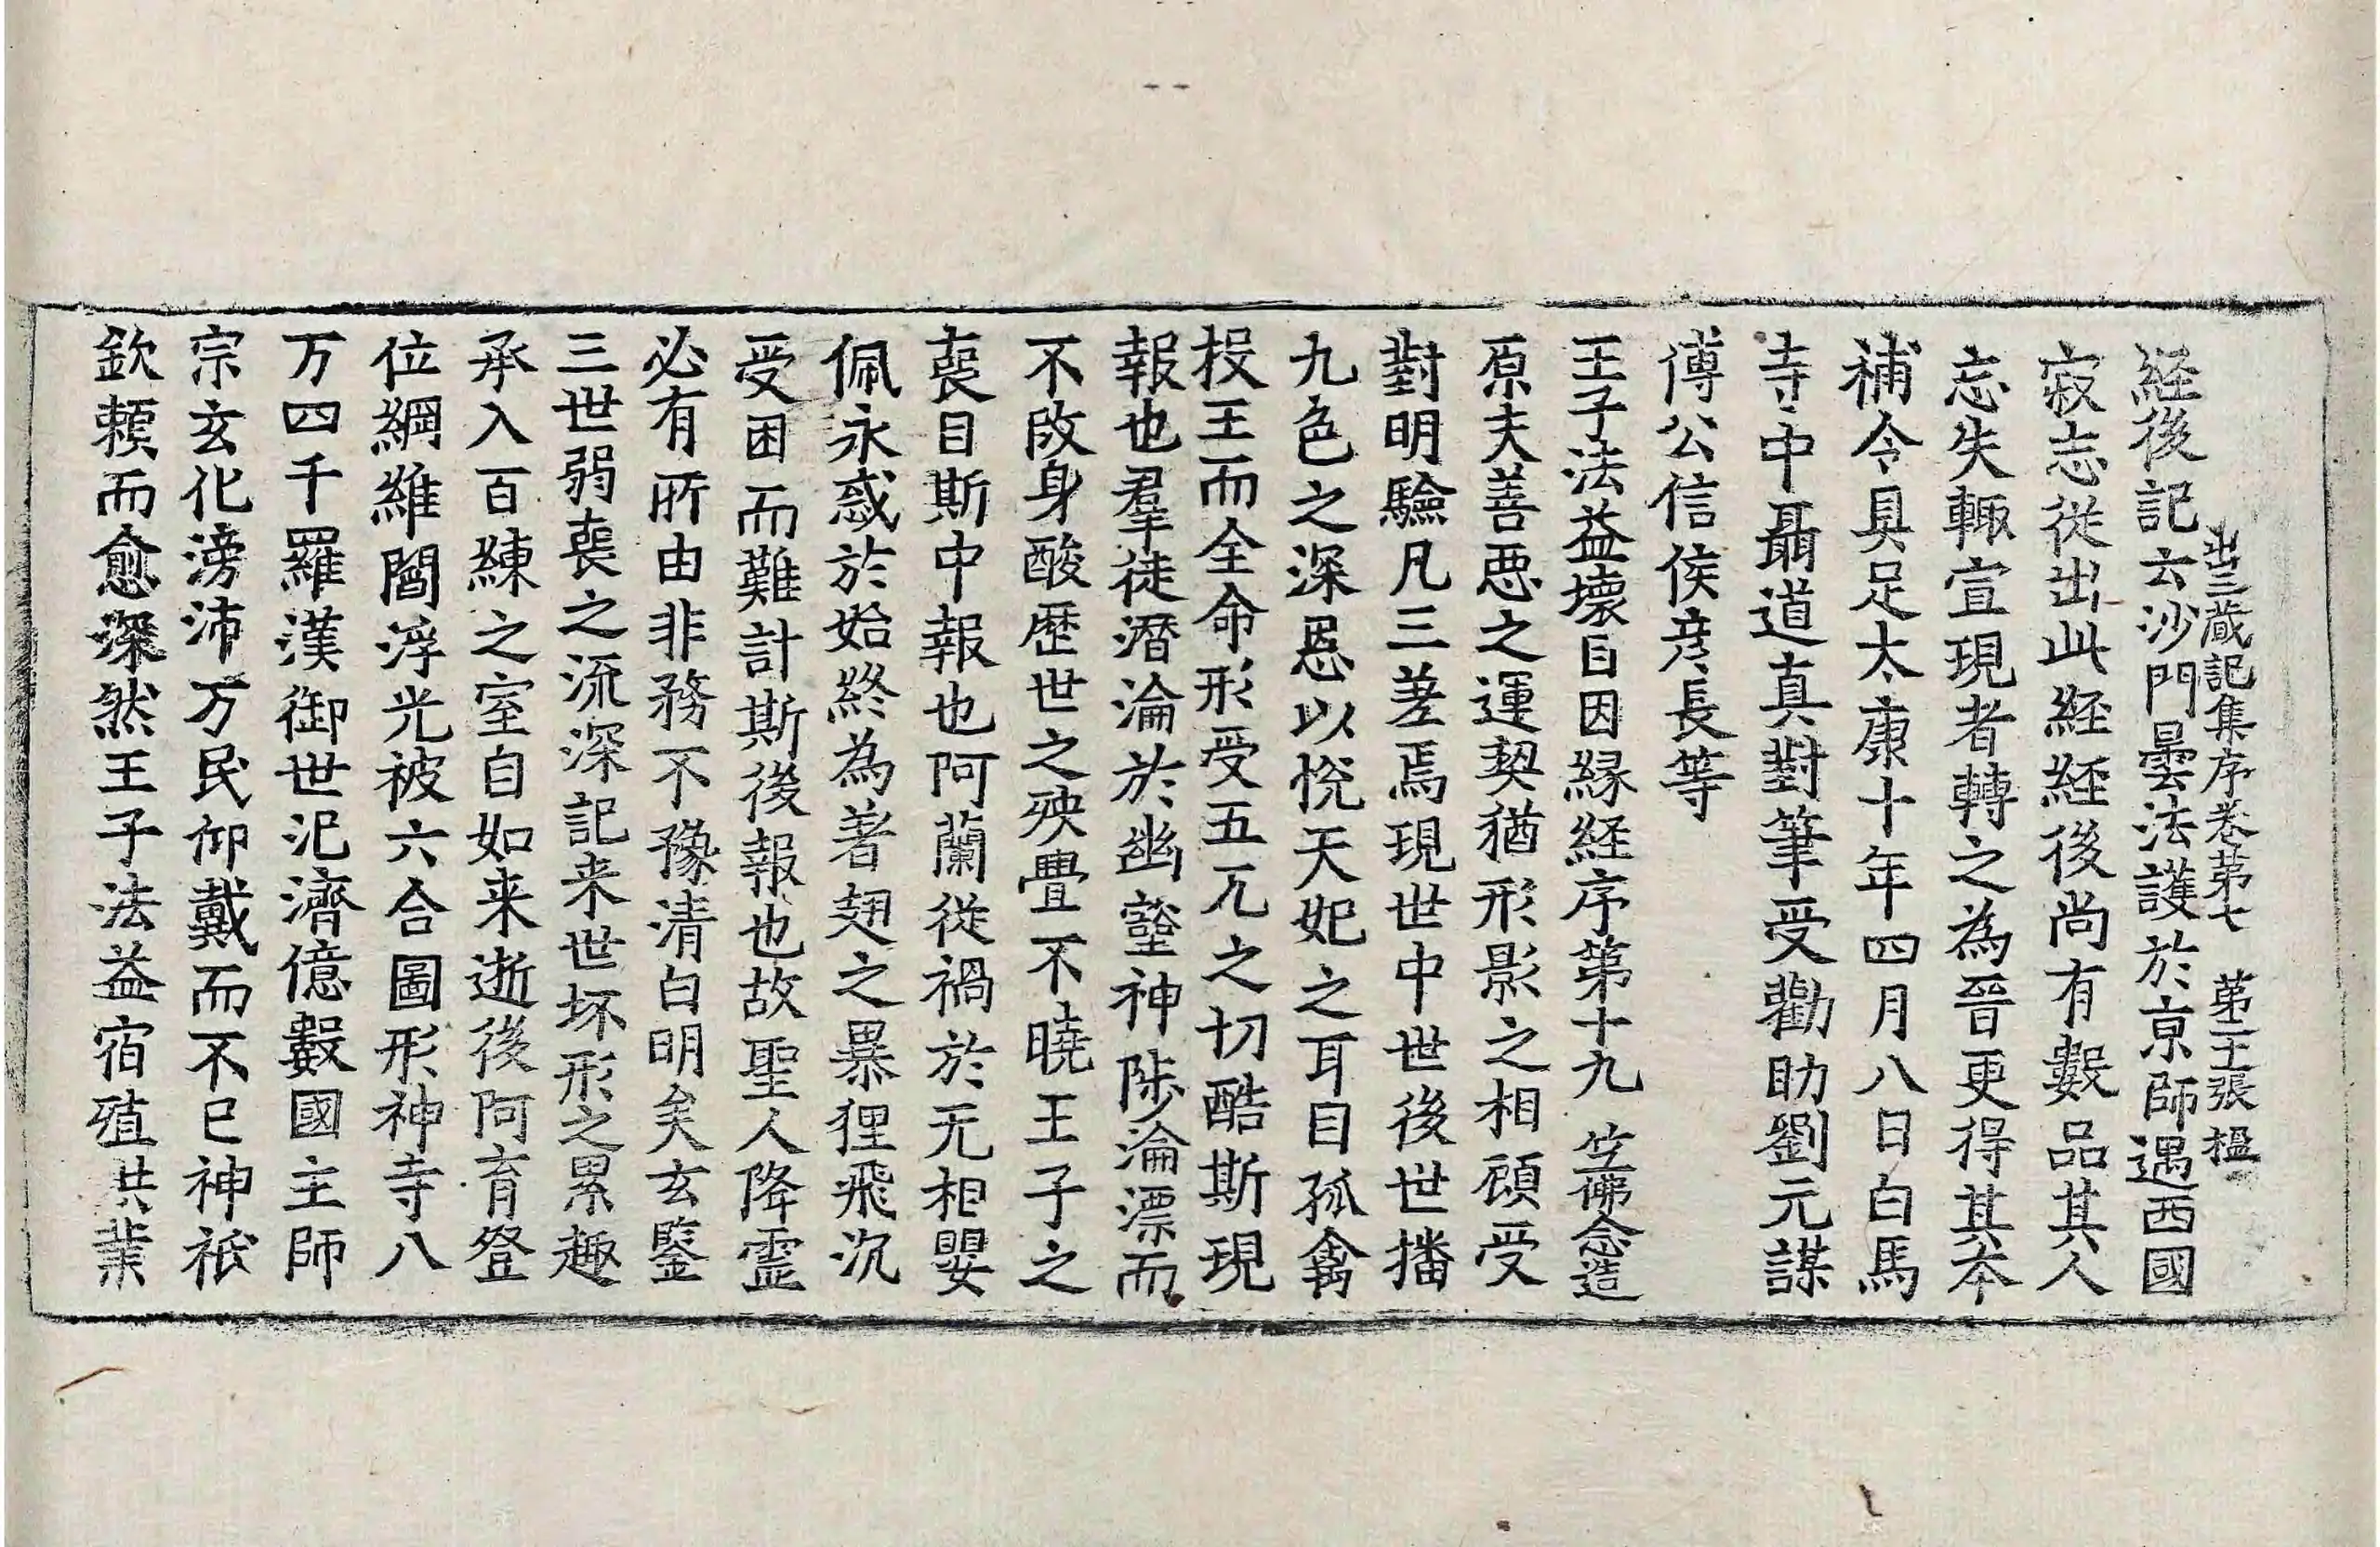 出三藏記集序卷第七 第二十張 楹
経後記云沙門曇法護於京師遇西國
寂志従出此経経後尚有數品其人
忘失輙宣現者轉之為晉更得其本
補令具足太康十年四月八日白馬
寺中聶道真對筆受勸助劉元謀
傅公信侯彦長等
王子法益壞目因縁経序第十九 竺佛念造
原夫善悪之運契猶形影之相顧受
對明驗凡三差焉現世中世後世播
九色之深恩以恱天妃之耳目孤禽
投王而全命形受五兀之切酷斯現
報也羣徒潛淪於幽壑神陟淪漂而
不改身酸歴世之殃疊不曉王子之
喪目斯中報也阿蘭従禍於无相嬰
佩永惑於始終為著翅之暴狸飛沉
受困而難計斯後報也故聖人降霊
必有所由非務不豫清白明矣玄鑒
三世弱喪之流深記来世坏形之累趣
承入百練之室自如来逝後阿育登
位綱維閻浮光被六合圖形神寺八
万四千羅漢御世汜濟億數國主師
宗玄化滂沛万民仰戴而不已神祇
欽頼而愈深然王子法益宿殖共業